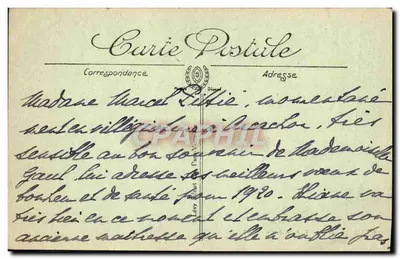 Carte Postale
Correspondance
Adresse
Madame Marcel momentané
ment en villégiature à Arcachon, très
sensible au bon souvenir de Mademoiselle
Gaul, lui adresse ses meilleurs vœux de
bonheur et de santé pour 1920. va
très bien en ce moment et embrasse son
ancienne maîtresse qu'elle n'oublie pas